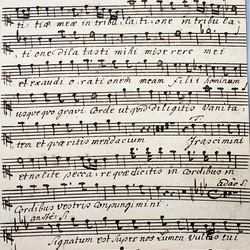 ti: tiæ meæ in tribu: la: ti: one in tribu la:
ti one dila tasti mihi miserere mei
et exaudi o: rationem meam filii hominum
usquequo gravi Corde ut quid diligitis Vanita:
tem et quæritis mendacium Irascimini
et nolite peccare quæ dicitis in Cordibus in
Cordibus vestris Conpungimini
Signatum est super nos Lumen Vultus tui